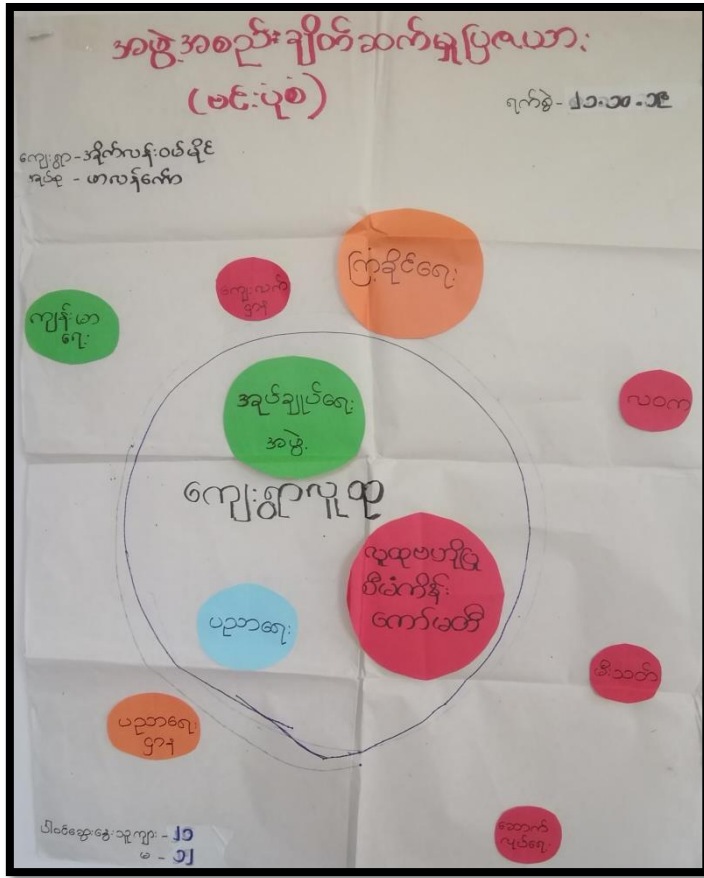 အဖွဲ့အစည်းချိတ်ဆက်မှုပြဇယား
(ဗင်းပုံစံ)
ရက်စွဲ - ၂၁.၁၀.၁၉
ကျေးရွာ - အိုက်လန်းဝမ်မိုင်
အုပ်စု - ဟာလန်ကော်
ကြံ့ခိုင်ရေး
ကျေးလက်
ဌာန
ကျန်းမာ
ရေး
အုပ်ချုပ်ရေး
အဖွဲ့
လဝက
ကျေးရွာလူထု
လူထုဗဟိုပြု
စီမံကိန်း
ကော်မတီ
ပညာရေး
မီးသတ်
ပညာရေး
ဌာန
ဆောက်
လုပ်ရေး
ပါဝင်ဆွေးနွေးသူ ကျား - ၂၁
မ - ၁၂